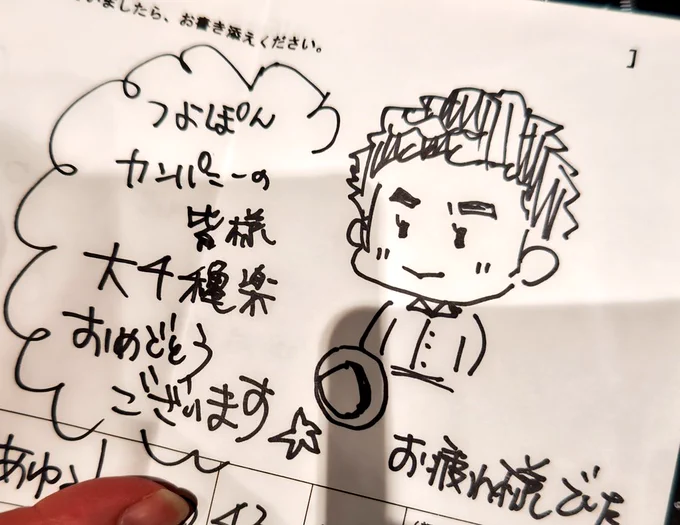 いましたら、お書き添えください。
]
つよぽん
カンパニーの
皆様
大千穐楽
おめでとう
ございます
お疲れ様でした
あゆ